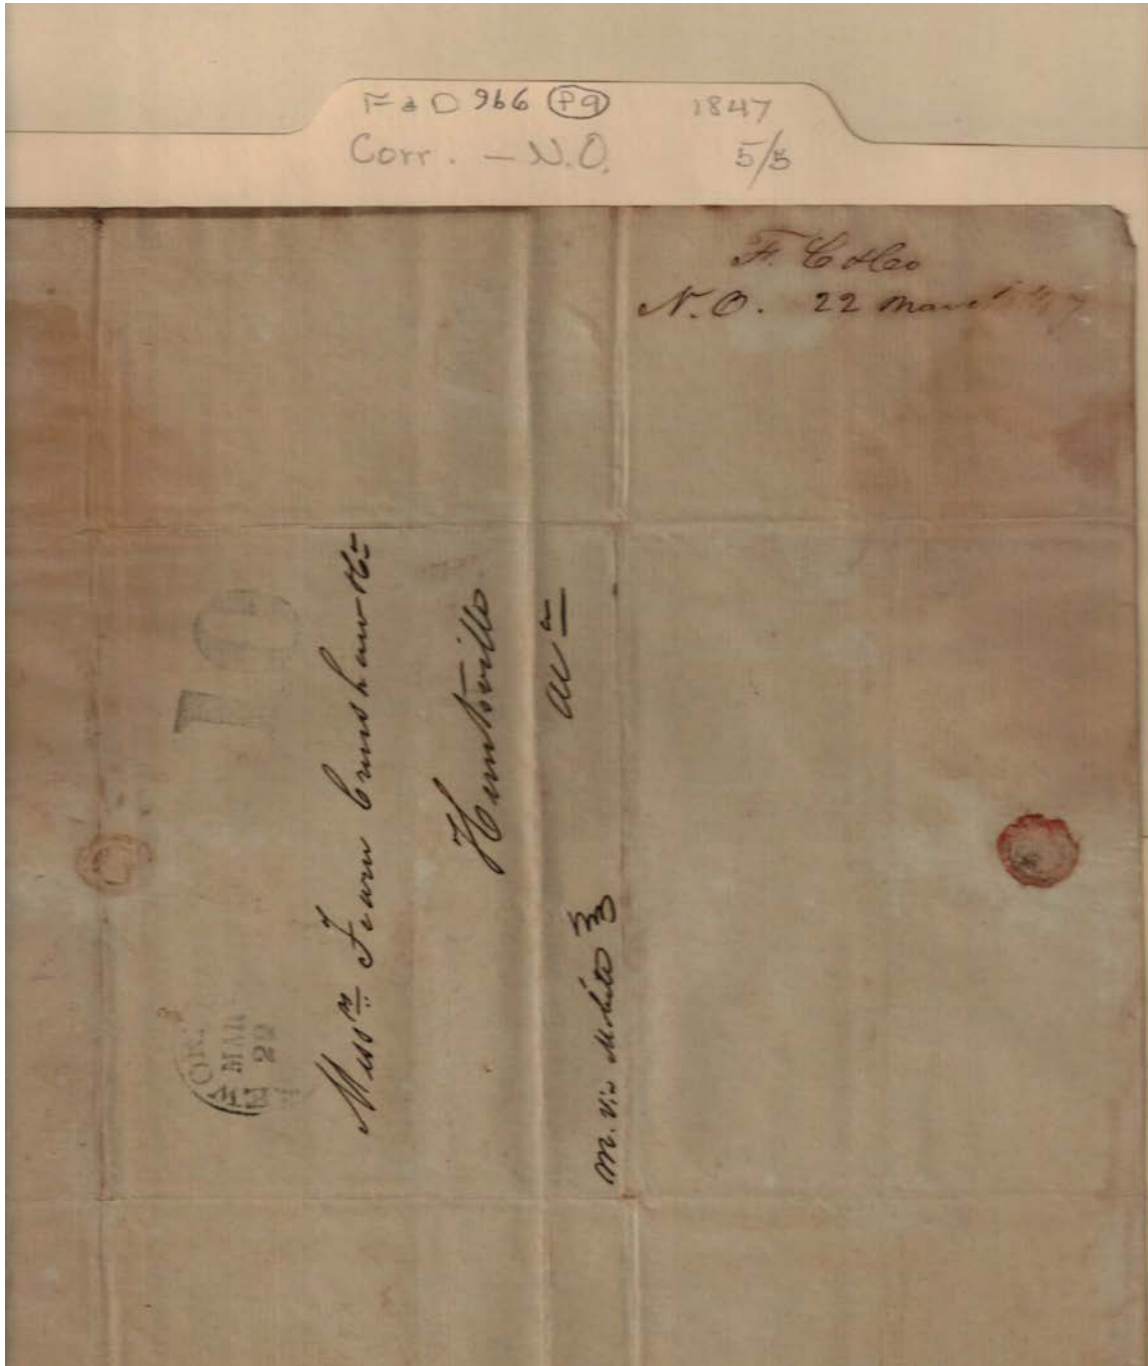 F & D 966 (P9) 1847
Corr. — N.O. 5/5
F. C & Co
N.O. 22 March 1847
10
MAR
22
Messrs Fearn Crenshaw & Co
Huntsville
Ala
m. via Mobile